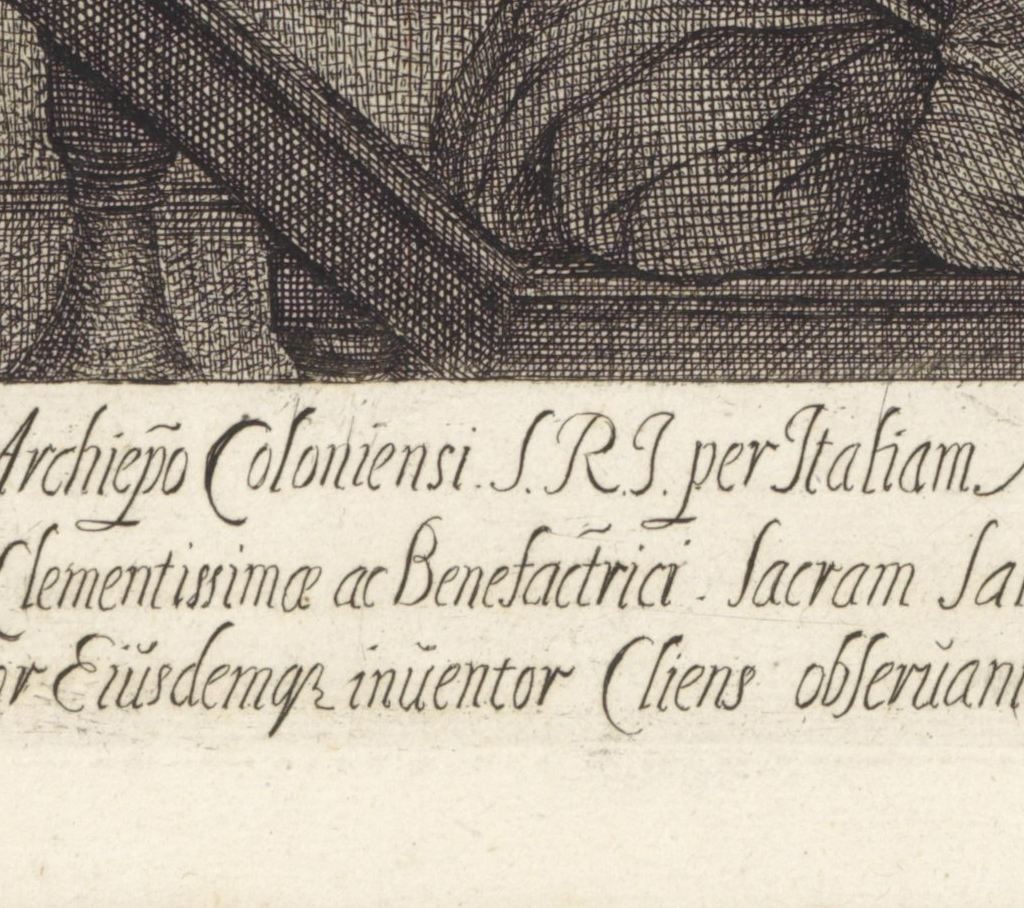 Archiepõ Coloniensi. S. R. I. per Italiam
Clementissimæ ac Benefactrici. Sacram
Eiŭsdemqꝫ inŭentor Cliens obserŭant